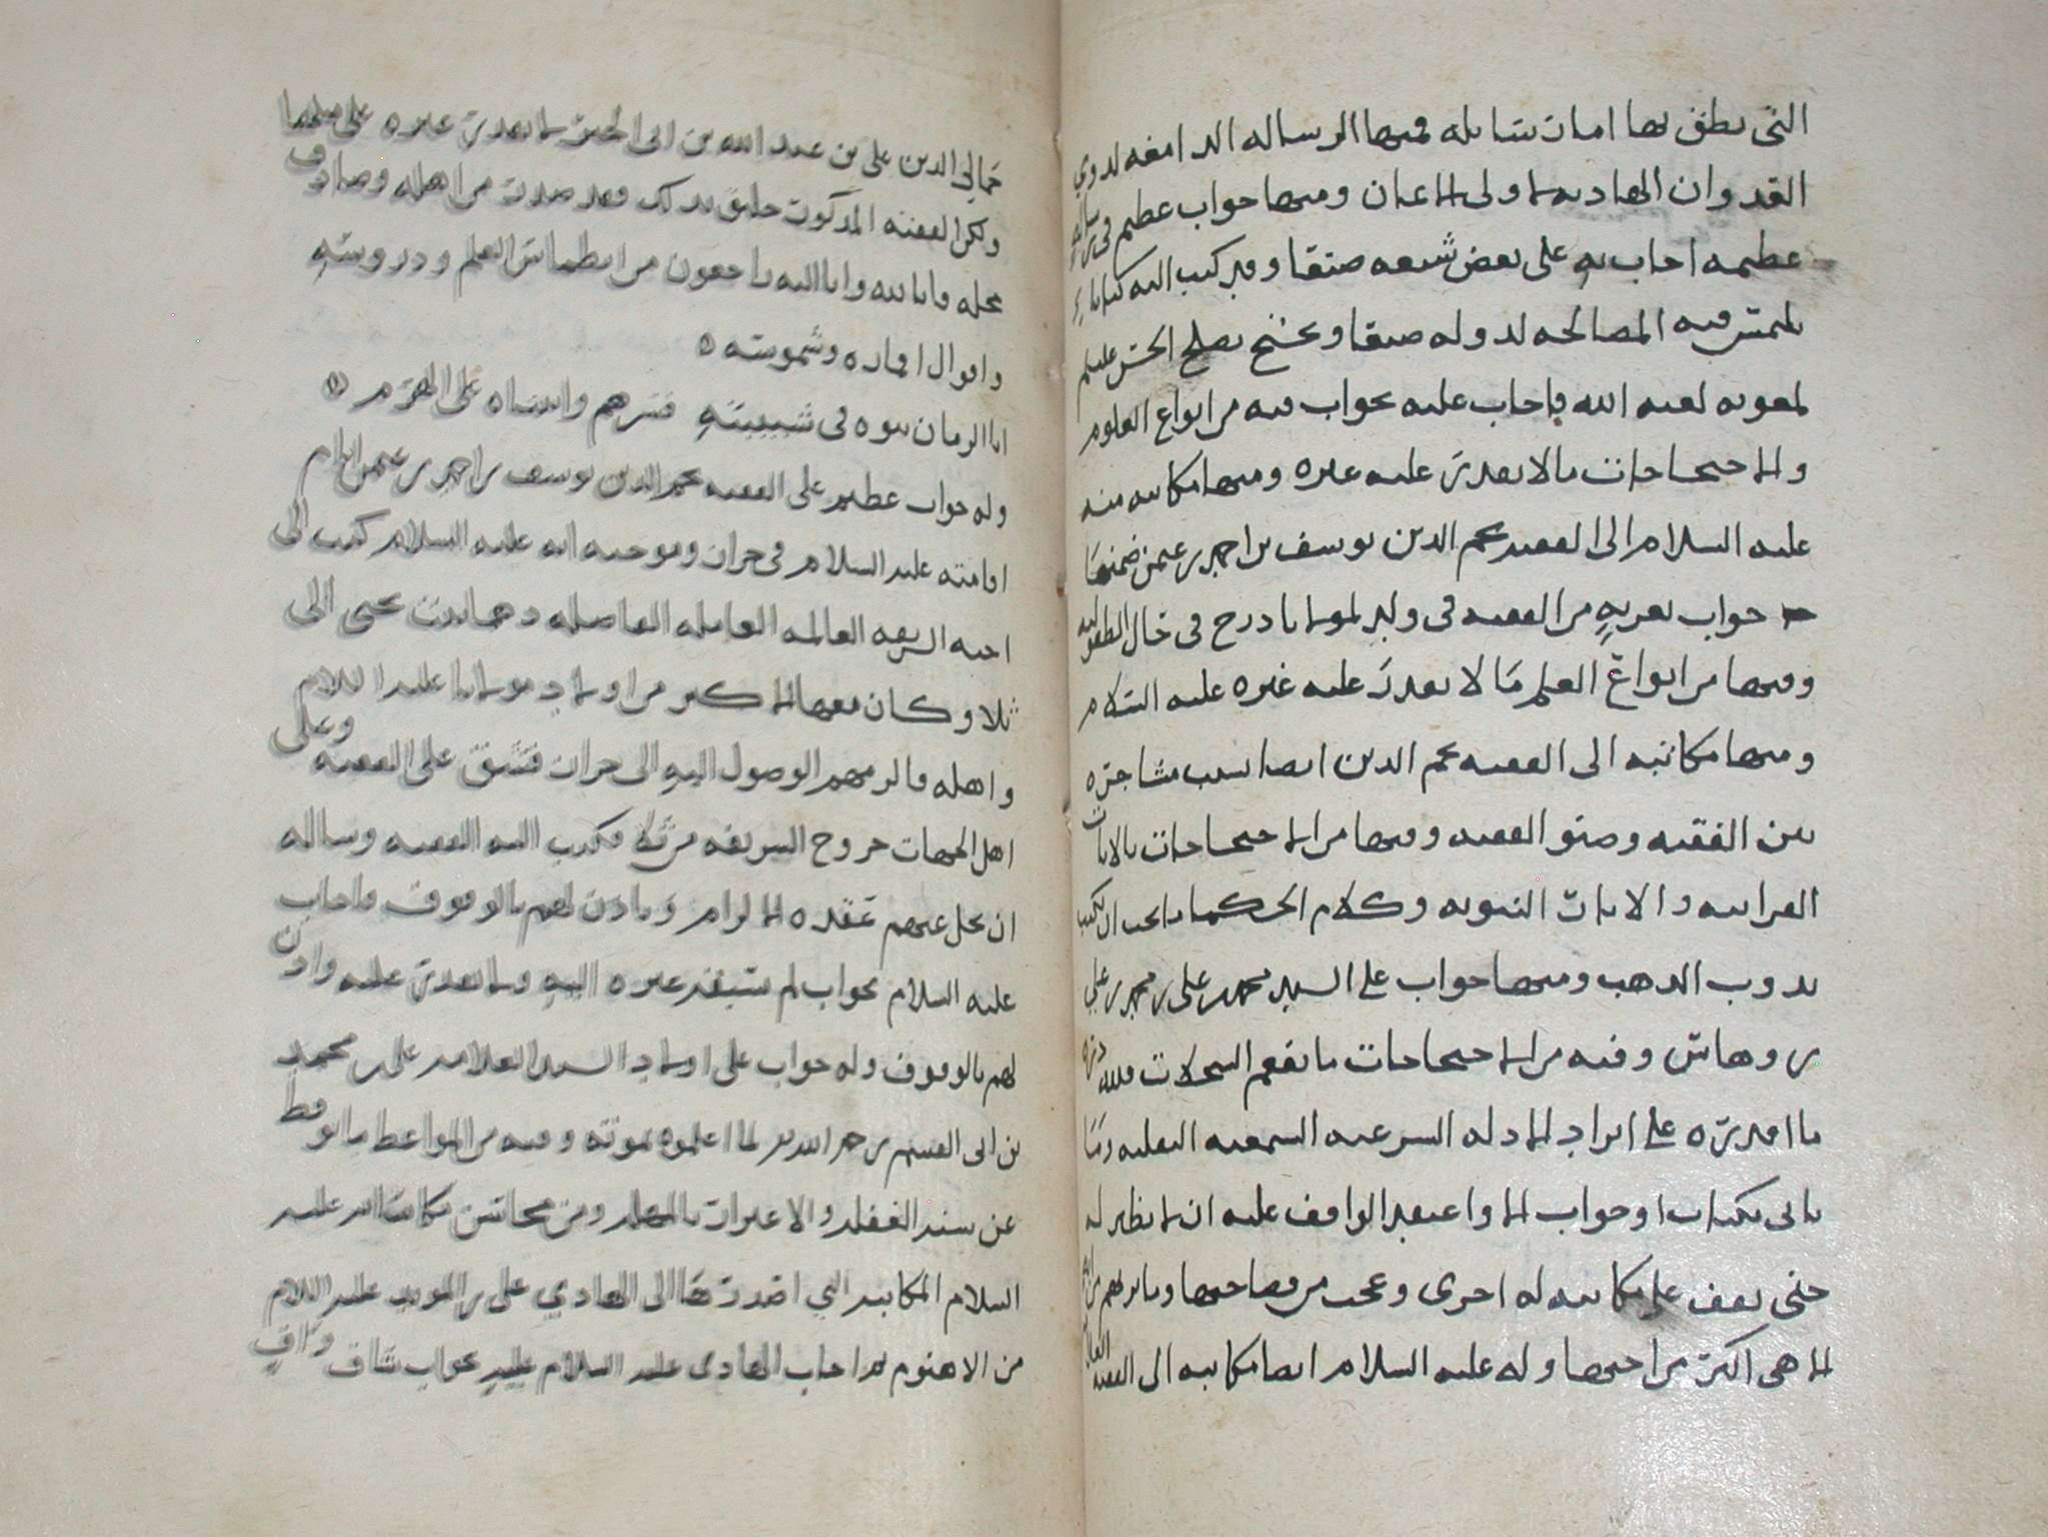 التي نطق بها امات بتابله فمنها الرساله الدامغه لذوي
القدوان الهاديه لاولى الاعان ومنها جواب عظيم في
عظيمه اجاب به على بعض شيعه صنعا وقد كتب اليه كتابا
يلتمس فيه المصالحه لدوله صنعا ويحتج بصلح الحسن عليلم
لمعويه لعنه الله فاجاب عليه بجواب فيه من انواع العلوم
والاحتجاجات مالا يقدر عليه غيره ومنها مكاتبه منه
عليه السلام الى الفقيه نجم الدين يوسف بن احمد بن عثمن ضمنها
جواب تعزيه من الفقيه في ولد لمولانا درج في حال الطفوليه
وفيها من انواع العلم مَا لا يقدر عليه غيره عليه السّلام
ومنها مكاتبه الى الفقيه نجم الدين ايضا بسبب مشاجره
بين الفقيه وصنو الفقيه وفيها من الاحتجاجات بالايات
القرانيه والايات النبويه وكلام الحكما ما يجب ان يكتب
بذوب الذهب ومنها جواب على السيد محمد بن على بن محمد بن علي
بن وهاس وفيه من الاحتجاجات ما يفعم السجلات فلله دره
ما اقدره على ايراد الادله الشرعيه السمعيه العقليه ومَا
ياتى بكتاب او جواب الا واعتقد الواقف عليه ان لا نظير له
حتى يقف على مكاتبه له اخرى وعجب من فصاحتها
الا هى اكبر من اختها وله عليه السلام ايضا مكاتبه الى الفقيه
جمالي الدين على بن عبد الله بن ابى الخير لا يقدر غيره على مثلها
ولكن الفقيه المذكور خليق بذلك فقد صدرت من اهله وصادف
محله فانا لله وانا اليه راجعون من انطماس العلم ودروسه
وافوال اقماره وشموسه ه
اتا الزمان بنوه في شبيبته فسرهم واتيناه على الهرم ه
وله جواب عظيم على الفقيه نجم الدين يوسف بن احمد بن عثمن ايام
اقامته عليه السلام في حران وموجبه انه عليه السلام كتب الى
اخته الشريفه العالمه العامله الفاضله دهما بنت يحيى الى
ثلا وكان معها الاكثر من اولاد مولانا عليه السلام
واهله فالزمهم الوصول اليه الى حران فشق على الفقيه وعلى
اهل الجهات خروج الشريفه من ثلا فكتب اليه الفقيه وساله
ان يحل عنهم عقده الالزام وياذن لهم بالوقوف فاجاب
عليه السلام بجواب لم يسبقه غيره اليه ولا يقدر عليه واذن
لهم بالوقوف وله جواب على اولاد السيد العلامه على بن محمد
بن ابى القسم رحمه الله لما اعلموه بموته وفيه من المواعظ ما يوقظ
عن سنه الغفله والاعتزاز بالمهله ومن محاسن مكاتباته عليه
السلام المكاتبه التي اصدرها الى الهادي على بن المويد عليه السلام
من الاهنوم لما اجاب الهادى عليه السلام عليه بجواب شاف واف